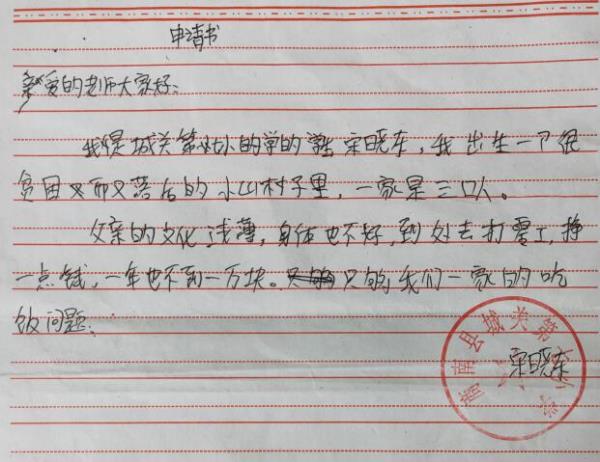 申请书
亲爱的老师大家好:
我是城关第六小的学的学生宋晓东,我出生一个很
贫困又而又落后的小山村子里,一家是三口人。
父亲的文化浅薄,身体也不好,到处去打零工,挣
一点钱,一年也不到一万块。只够我们一家的吃
饭问题.
商南县城关第六小学
宋晓东